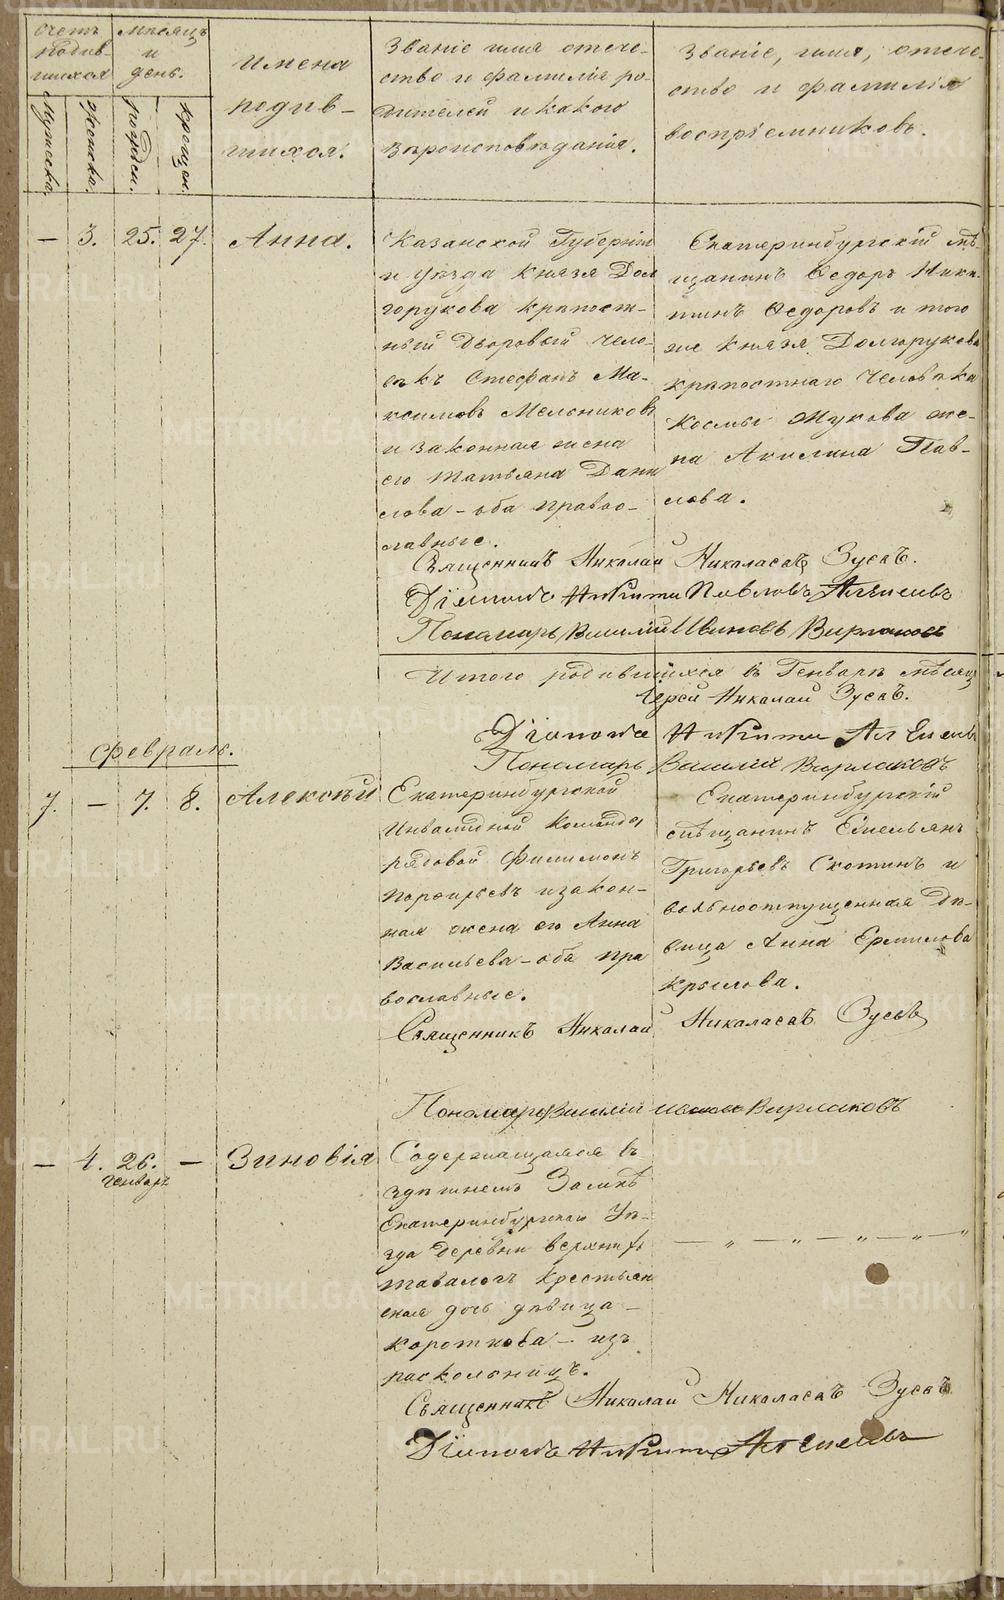 Счетъ родив-
шихся
Мѣсяцъ
и
день.
Имена
родив-
шихся.
Званіе имя отече-
ство и фамилія ро-
дителей и какого
вѣроисповѣданія.
Званіе, имя, отече-
ство и фамилія
воспріемниковъ.
мужеска.
женска.
рожден.
крещен.
— 3. 25. 27. Анна.
Казанской Губерніи
и уѣзда Князя Дол
горукова крѣпост-
ный Дворовый чело-
вѣкъ Стефанъ Ма-
ксимовъ Мельниковъ
и законная жена
его Татьяна Дани
лова - оба право-
славные.
Екатеринбургскій мѣ-
щанинъ Ѳедоръ Ники-
тинъ Ѳедоровъ и того
же Князя Долгорукова
крѣпостнаго человѣка
Космы Жукова же-
на Акилина Пав-
лова.
Священникъ Николай Николаевъ Зуевъ.
Діаконъ Никита Павловъ
Пономарь Василій Ивановъ Бирлаковъ
Итого родившихся въ Генварѣ мѣсяц
Іерей Николай Зуевъ.
Діаконъ Никита
Пономарь Василій Бирлаковъ
Февраль.
7. — 7. 8. Алексѣй
Екатеринбургской
Инвалидной команды
рядовой Филимонъ
Порфирьевъ и закон-
ная жена его Анна
Васильева - оба пра
вославные.
Екатеринбургскій
мѣщанинъ Емельянъ
Григорьевъ Скотинъ и
вольноотпущенная дѣ-
вица Анна Ермилова
Крылова.
Священникъ Николай Николаевъ Зуевъ
Пономарь Василій Бирлаковъ
— 4. 26. — Зиновія
Генварь
Содержащаяся въ
здѣшнемъ Замкѣ
Екатеринбургскаго Уѣ-
зда деревни верхнихъ
тавалогъ крестьян
ская дочь дѣвица -
Короткова - изъ
раскольницъ.
— „ — „ — „ — „
Священникъ Николай Николаевъ Зуевъ
Діаконъ Никита
METRIKI.GASO-URAL.RU